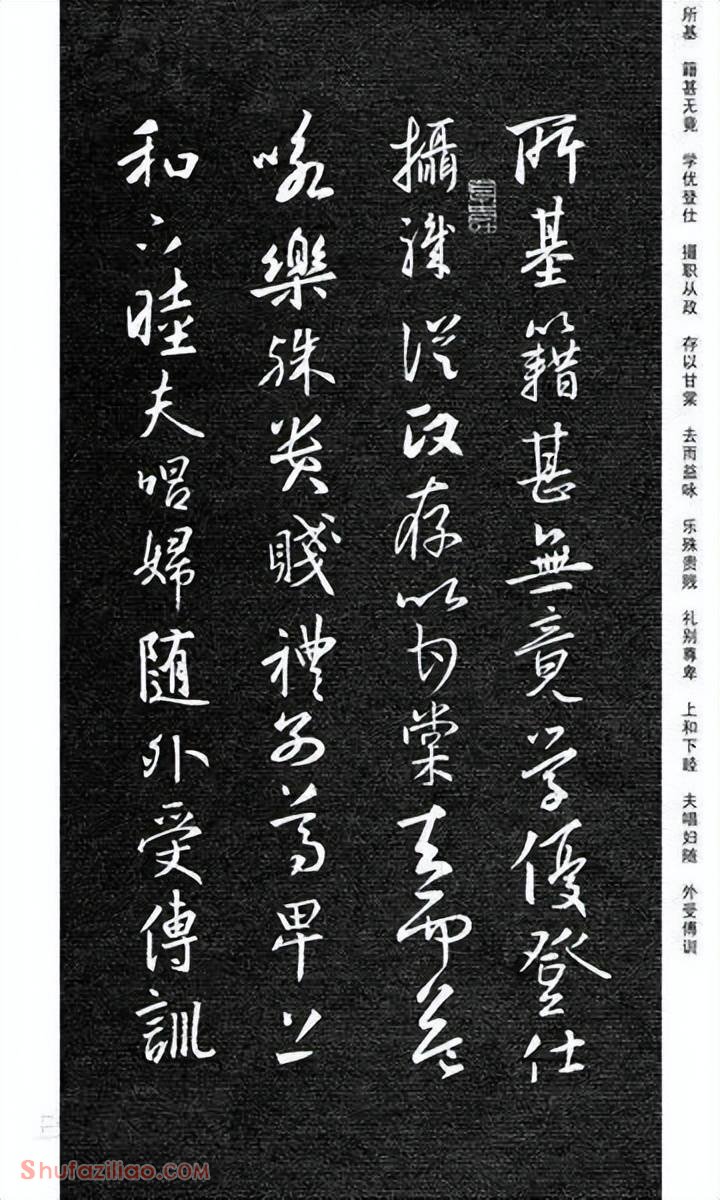 所基 籍甚无竟 学优登仕 摄职从政 存以甘棠 去而益咏 乐殊贵贱 礼别尊卑 上和下睦 夫唱妇随 外受傅训
所基籍甚無竟学優登仕
攝職從政存以甘棠去而益
咏樂殊贵賤禮别尊卑上
和下睦夫唱婦随外受傅訓
Shufaziliao.com